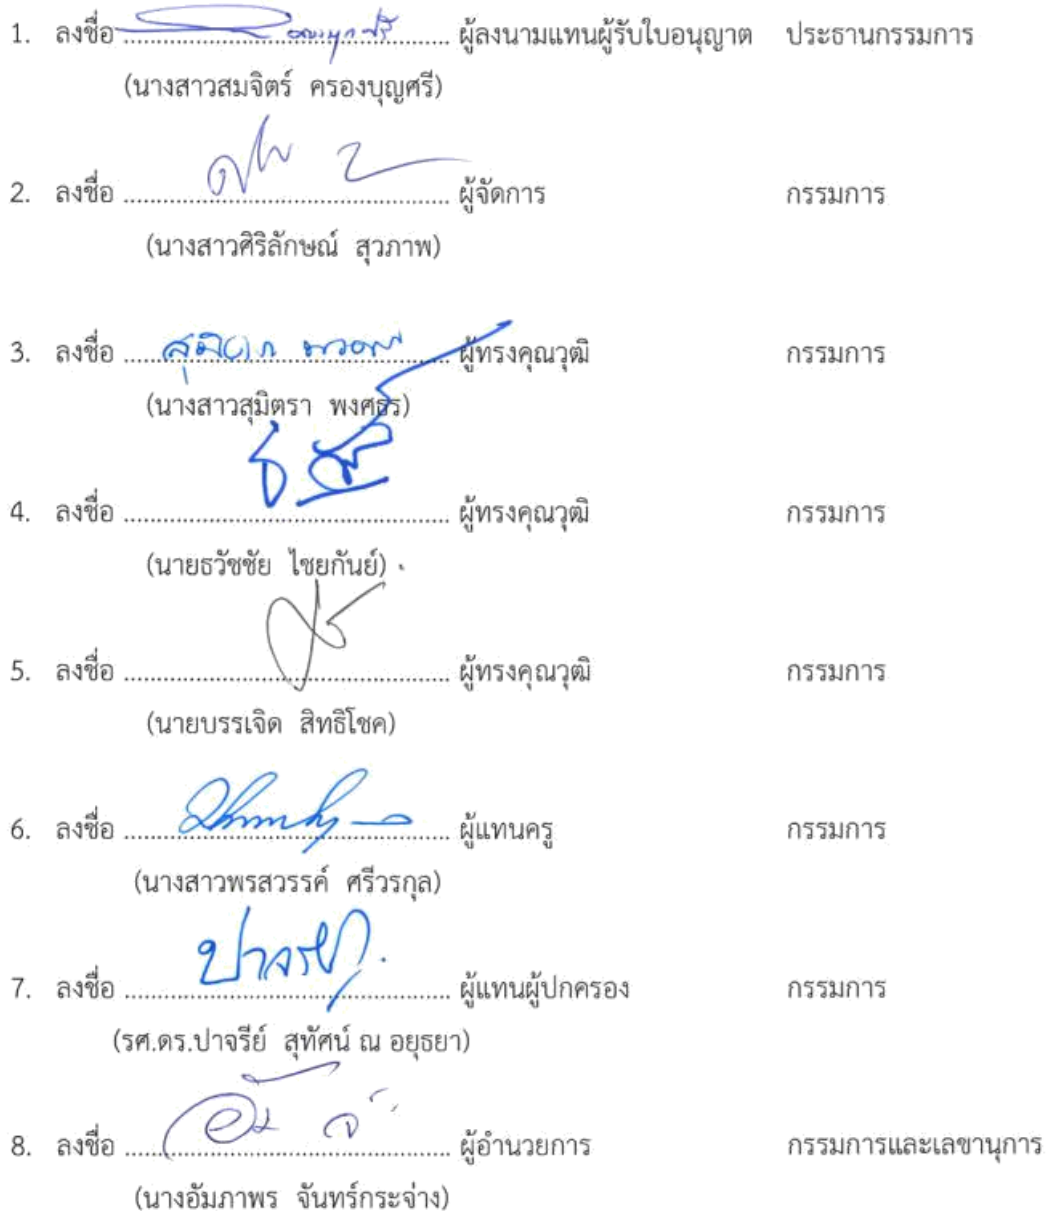 1. ลงชื่อ ........................................ ผู้ลงนามแทนผู้รับใบอนุญาต ประธานกรรมการ
(นางสาวสมจิตร์ ครองบุญศรี)
2. ลงชื่อ ........................................ ผู้จัดการ กรรมการ
(นางสาวศิริลักษณ์ สุวภาพ)
3. ลงชื่อ ........................................ ผู้ทรงคุณวุฒิ กรรมการ
(นางสาวสุมิตรา พงศธร)
4. ลงชื่อ ........................................ ผู้ทรงคุณวุฒิ กรรมการ
(นายธวัชชัย ไชยกันย์)
5. ลงชื่อ ........................................ ผู้ทรงคุณวุฒิ กรรมการ
(นายบรรเจิด สิทธิโชค)
6. ลงชื่อ ........................................ ผู้แทนครู กรรมการ
(นางสาวพรสวรรค์ ศรีวรกุล)
7. ลงชื่อ ........................................ ผู้แทนผู้ปกครอง กรรมการ
(รศ.ดร.ปาจรีย์ สุทัศน์ ณ อยุธยา)
8. ลงชื่อ ........................................ ผู้อำนวยการ กรรมการและเลขานุการ
(นางอัมภาพร จันทร์กระจ่าง)